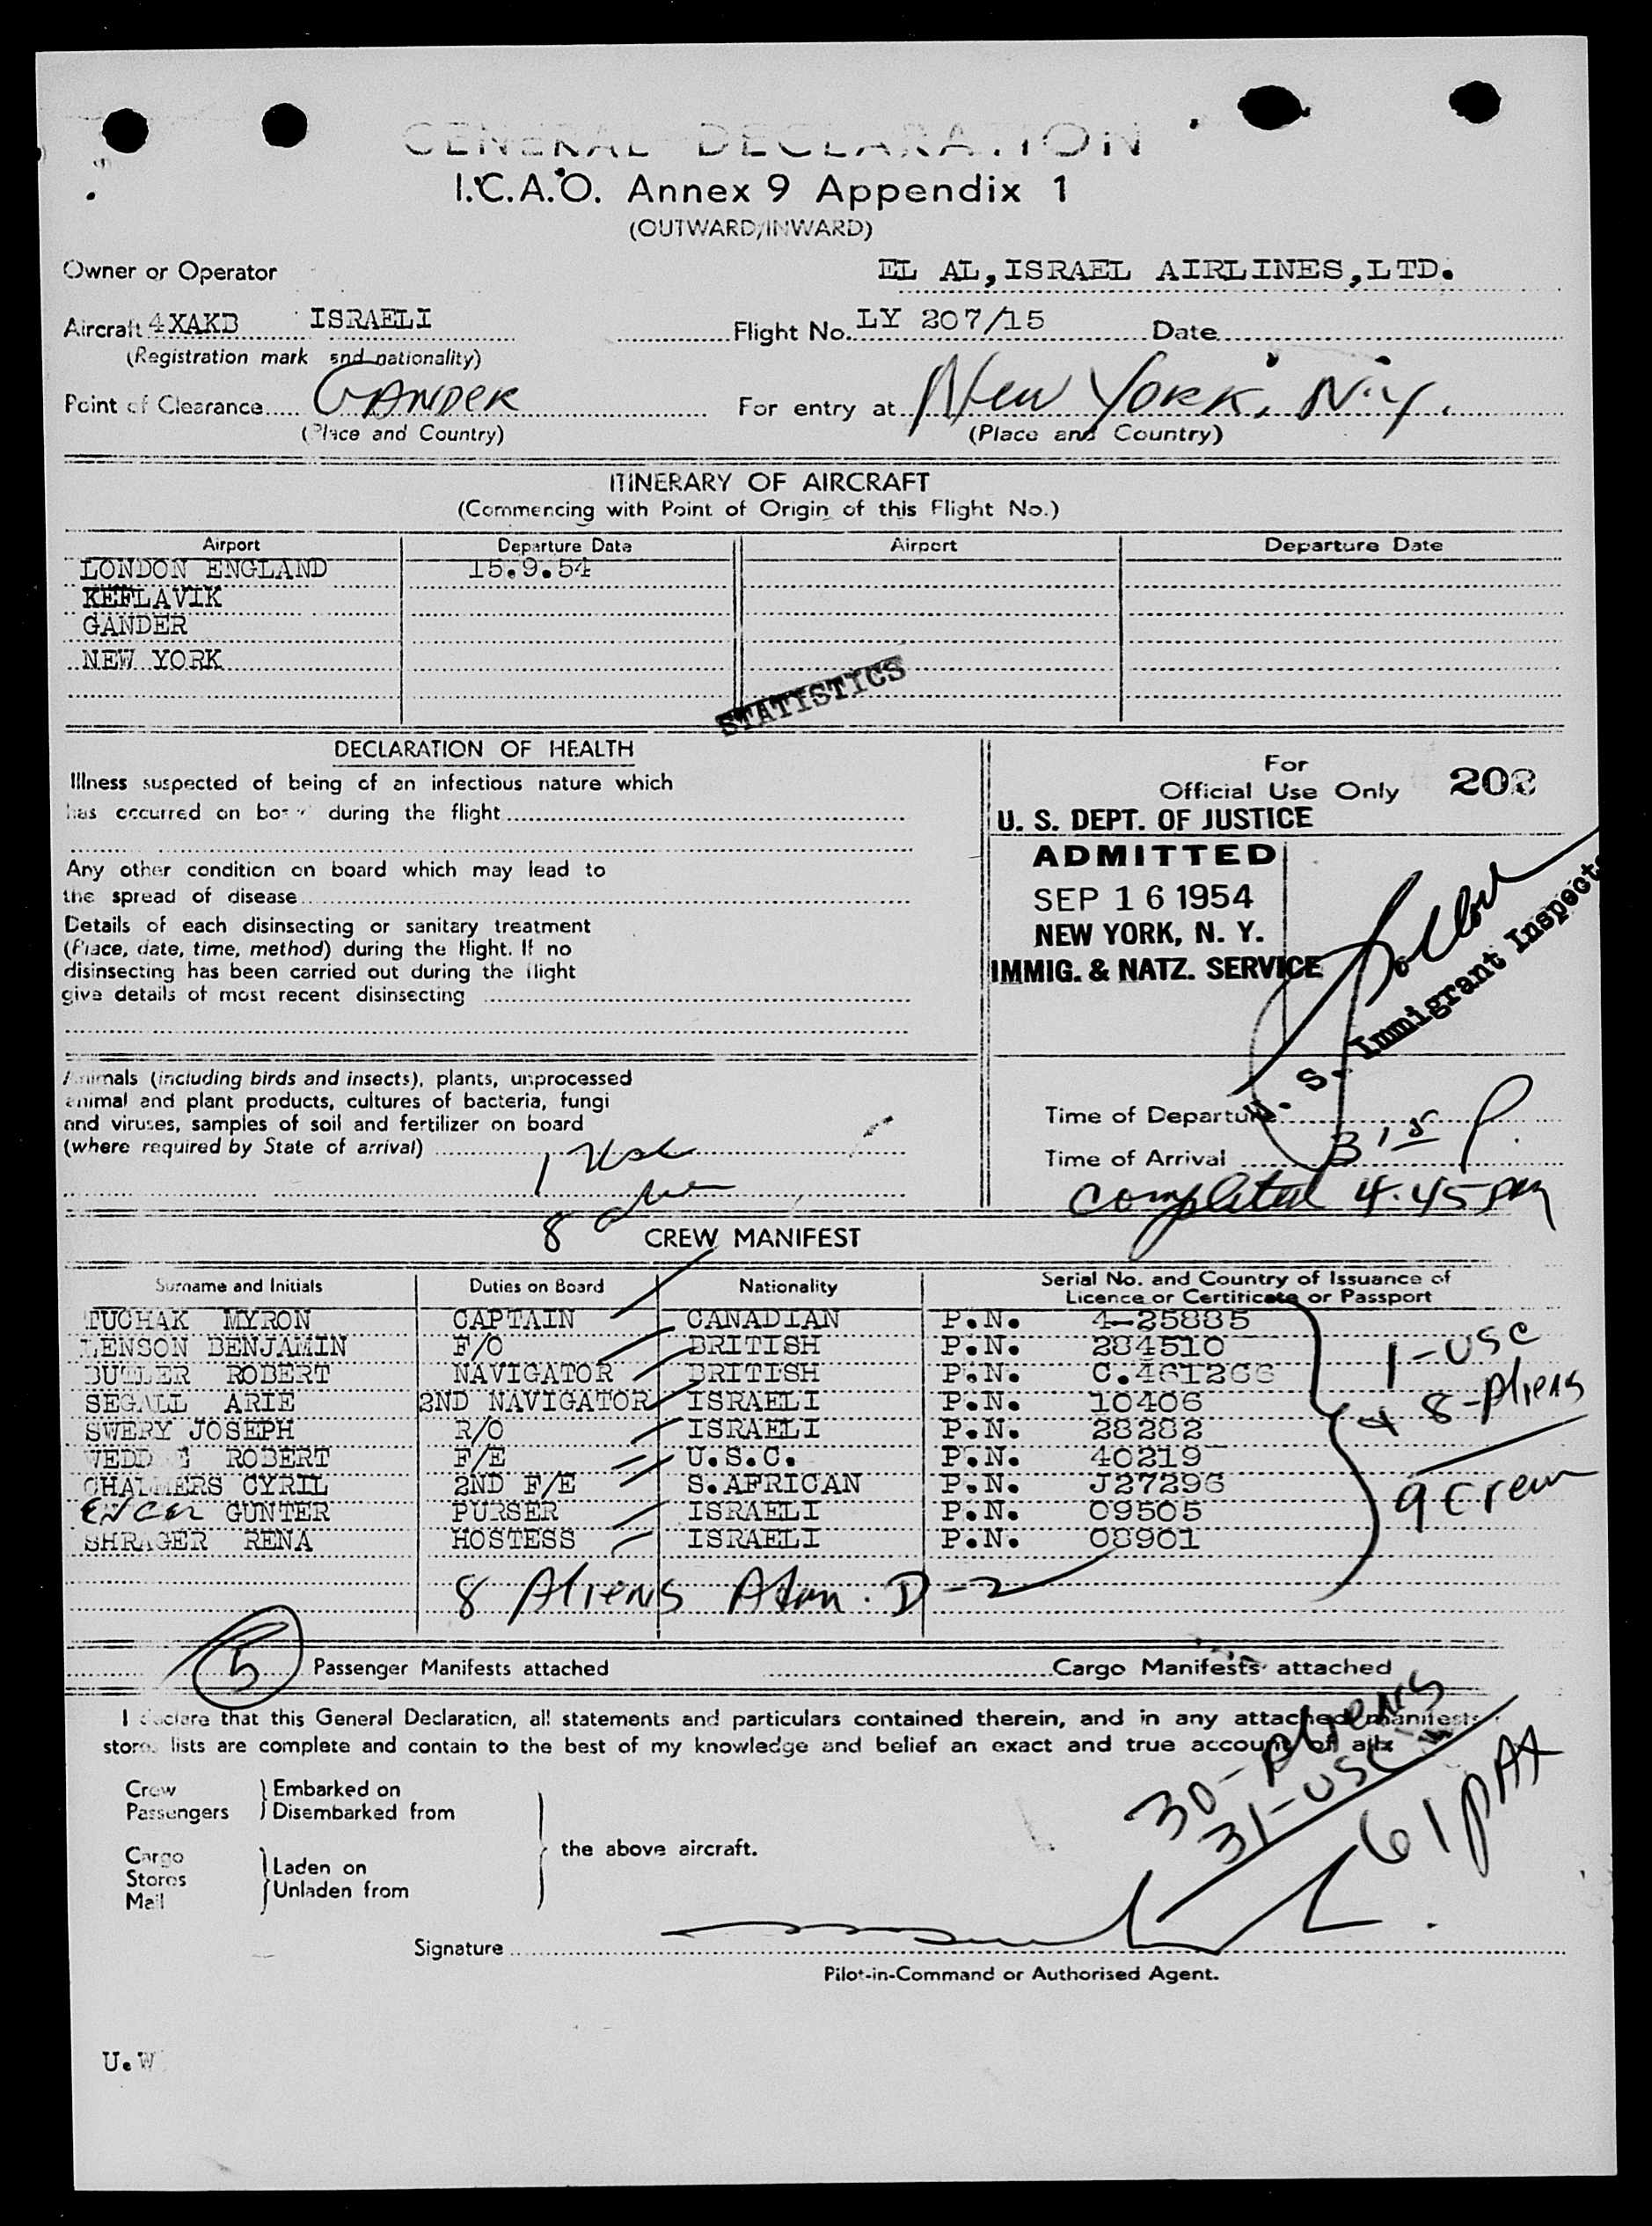 GENERAL DECLARATION
I.C.A.O. Annex 9 Appendix 1
(OUTWARD/INWARD)
Owner or Operator EL AL, ISRAEL AIRLINES, LTD.
Aircraft 4XAKB ISRAELI Flight No. LY 207/15 Date
(Registration mark and nationality)
Point of Clearance GANDER For entry at New York, N.Y.
(Place and Country) (Place and Country)
ITINERARY OF AIRCRAFT
(Commencing with Point of Origin of this Flight No.)
Airport Departure Date Airport Departure Date
LONDON ENGLAND 15.9.54
KEFLAVIK
GANDER
NEW YORK
STATISTICS
DECLARATION OF HEALTH
Illness suspected of being of an infectious nature which
has occurred on board during the flight
Any other condition on board which may lead to
the spread of disease
Details of each disinsecting or sanitary treatment
(Place, date, time, method) during the flight. If no
disinsecting has been carried out during the flight
give details of most recent disinsecting
For
Official Use Only 202
U. S. DEPT. OF JUSTICE
ADMITTED
SEP 16 1954
NEW YORK, N. Y.
IMMIG. & NATZ. SERVICE
U. S. Immigrant Inspector
Animals (including birds and insects), plants, unprocessed
animal and plant products, cultures of bacteria, fungi
and viruses, samples of soil and fertilizer on board
(where required by State of arrival) 1 USC
8
Time of Departure
Time of Arrival 3 15 P.
Completed 4.45 PM
CREW MANIFEST
Surname and Initials Duties on Board Nationality Serial No. and Country of Issuance of
Licence or Certificate or Passport
TUCHAK MYRON CAPTAIN CANADIAN P.N. 4-25885
LENSON BENJAMIN F/O BRITISH P.N. 284510
BUTLER ROBERT NAVIGATOR BRITISH P.N. C.461266
SEGALL ARIE 2ND NAVIGATOR ISRAELI P.N. 10406
SWERY JOSEPH R/O ISRAELI P.N. 28282
ROBERT F/E U.S.C. P.N. 40219
CHALMERS CYRIL 2ND F/E S.AFRICAN P.N. J27296
GUNTER PURSER ISRAELI P.N. 09505
SHRAGER RENA HOSTESS ISRAELI P.N. 08901
1-USC
8-Aliens
9 Crew
8 Aliens Adm. D-2
5 Passenger Manifests attached Cargo Manifests attached
I declare that this General Declaration, all statements and particulars contained therein, and in any attached manifests
stores lists are complete and contain to the best of my knowledge and belief an exact and true account of all:
30-Aliens
31-USC
61 PAX
Crew } Embarked on
Passengers } Disembarked from
the above aircraft.
Cargo
Stores } Laden on
Mail } Unladen from
Signature
Pilot-in-Command or Authorised Agent.
U.W